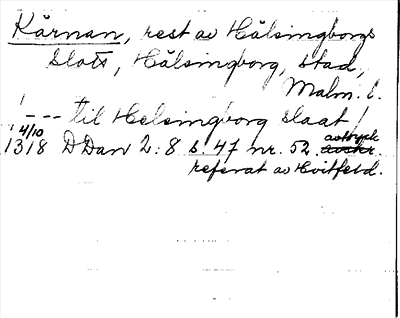 Kärnan, rest av Hälsingborgs
slott, Hälsingborg, stad,
Malm. l.
! --- til Helsingborg slaat !
1318 4/10 DDan 2:8 s. 47 nr. 52. avtryck
referat av Hvitfeld.